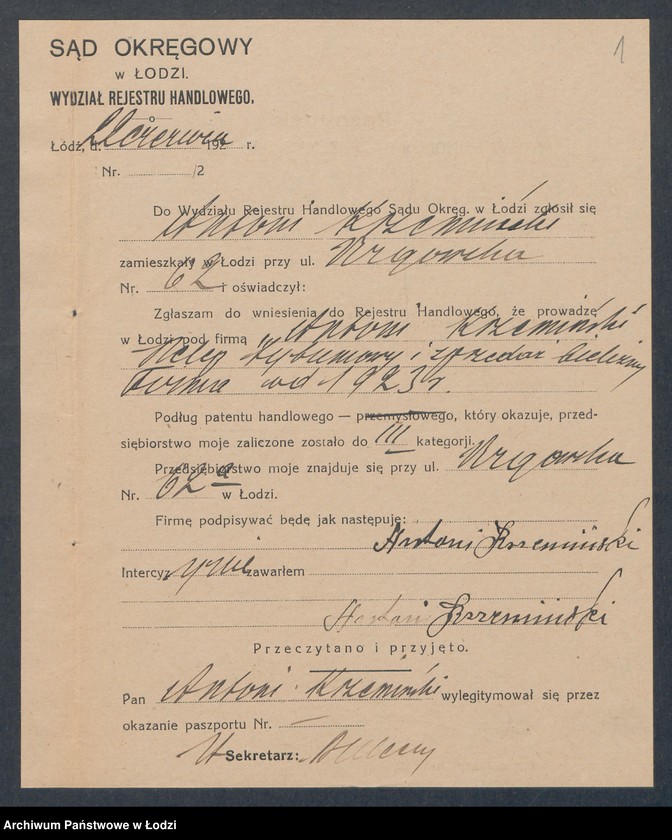 1
SĄD OKRĘGOWY
w ŁODZI.
WYDZIAŁ REJESTRU HANDLOWEGO.
Łódź, d. czerwca 192 r.
Nr. /2
Do Wydziału Rejestru Handlowego Sądu Okręg. w Łodzi zgłosił się
Antoni Krzemiński
zamieszkały w Łodzi przy ul. Wrzgowska
Nr. 62 i oświadczył:
Zgłaszam do wniesienia do Rejestru Handlowego, że prowadzę
w Łodzi pod firmą „Antoni Krzemiński"
Sklep i sprzedaż bielizny
Firma od 1923 r.
Podług patentu handlowego — przemysłowego, który okazuje, przed-
siębiorstwo moje zaliczone zostało do III kategorji.
Przedsiębiorstwo moje znajduje się przy ul. Wrzgowska
Nr. 62a w Łodzi.
Firmę podpisywać będę jak następuje:
Antoni Krzemiński
Intercyzy nie zawarłem
Antoni Krzemiński
Przeczytano i przyjęto.
Pan Antoni Krzemiński wylegitymował się przez
okazanie paszportu Nr. —
Sekretarz:
Archiwum Państwowe w Łodzi